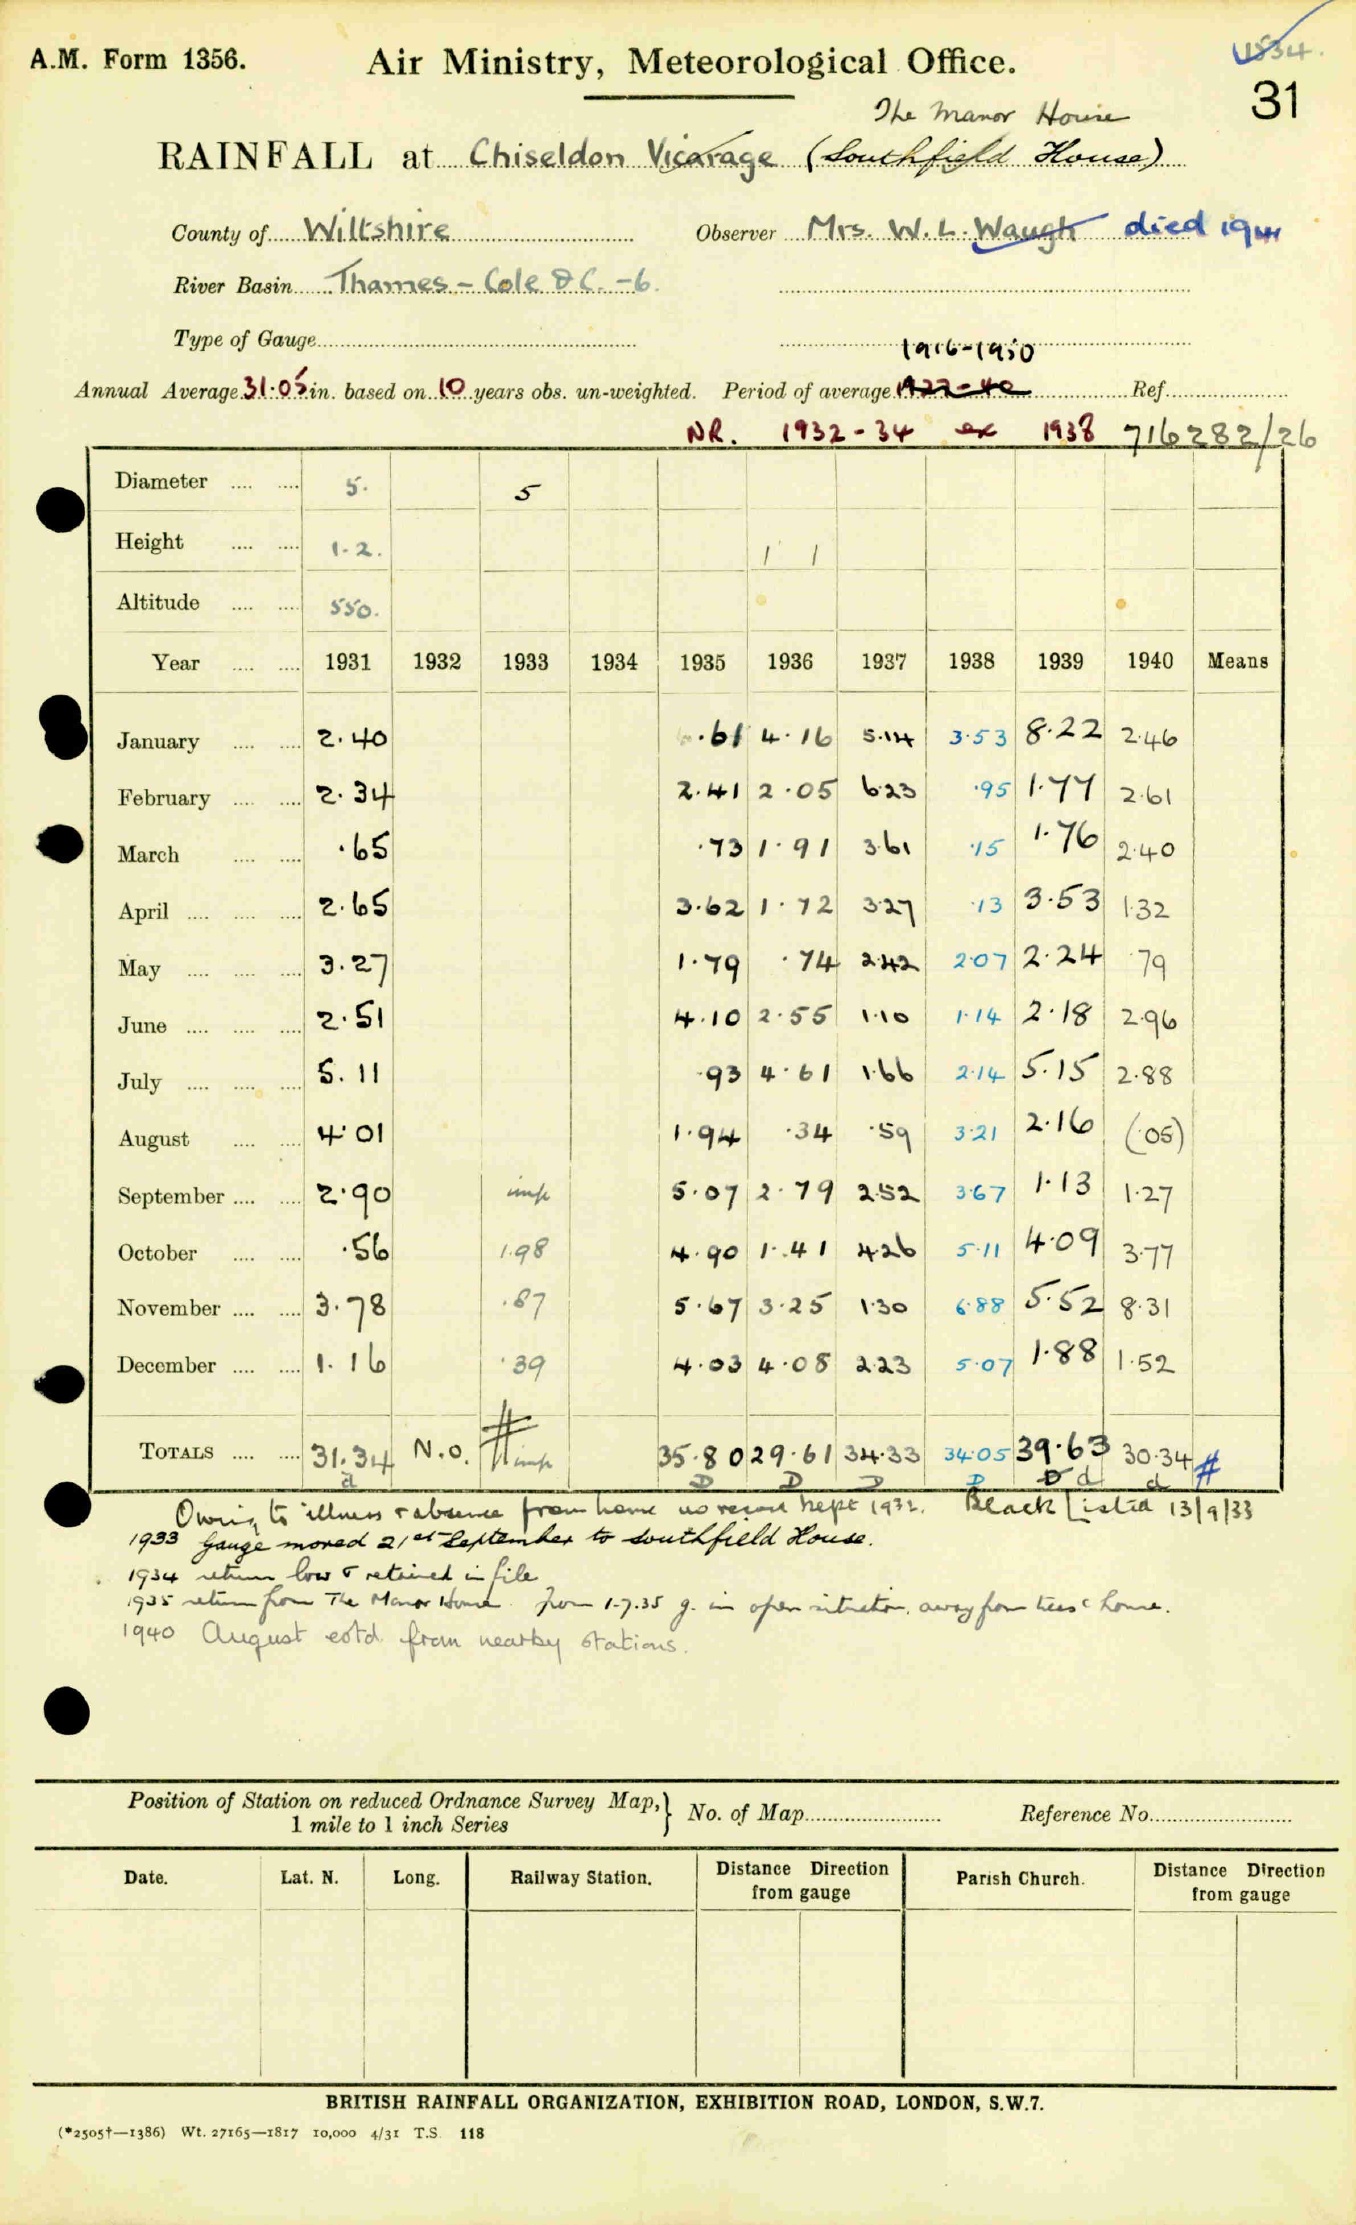 A.M. Form 1356. Air Ministry, Meteorological Office. 1534.
31
The Manor House
RAINFALL at Chiseldon Vicarage (Southfield House)
County of Wiltshire Observer Mrs. W. L. Waugh died 1941
River Basin Thames - Cole & C. - 6.
Type of Gauge
1916-1950
Annual Average 31.05 in. based on 10 years obs. un-weighted. Period of average 1922-40 Ref.
NR. 1932-34 ex 1938 716282/26
Diameter 5. 5
Height 1.2. 1 1
Altitude 550.
Year 1931 1932 1933 1934 1935 1936 1937 1938 1939 1940 Means
January 2.40 .61 4.16 5.14 3.53 8.22 2.46
February 2.34 2.41 2.05 6.23 .95 1.77 2.61
March .65 .73 1.91 3.61 .15 1.76 2.40
April 2.65 3.62 1.72 3.27 .13 3.53 1.32
May 3.27 1.79 .74 2.42 2.07 2.24 .79
June 2.51 4.10 2.55 1.10 1.14 2.18 2.96
July 5.11 .93 4.61 1.66 2.14 5.15 2.88
August 4.01 1.94 .34 .59 3.21 2.16 (.05)
September 2.90 imp 5.07 2.79 2.52 3.67 1.13 1.27
October .56 1.98 4.90 1.41 4.26 5.11 4.09 3.77
November 3.78 .87 5.67 3.25 1.30 6.88 5.52 8.31
December 1.16 .39 4.03 4.08 2.23 5.07 1.88 1.52
TOTALS 31.34 N.O. # imp 35.80 29.61 34.33 34.05 39.63 30.34 #
d D D D D D d d
Owing to illness & absence from home no record kept 1932. Black Listed 13/9/33
1933 Gauge moved 21st September to Southfield House.
1934 return low & retained in file
1935 return from The Manor House. From 1.7.35 g. in open situation, away from trees & house.
1940 August estd. from nearby stations.
Position of Station on reduced Ordnance Survey Map, } No. of Map Reference No.
1 mile to 1 inch Series
Date. Lat. N. Long. Railway Station. Distance Direction from gauge Parish Church. Distance Direction from gauge
BRITISH RAINFALL ORGANIZATION, EXHIBITION ROAD, LONDON, S.W.7.
(*2505†—1386) Wt. 27165—1817 10,000 4/31 T.S. 118